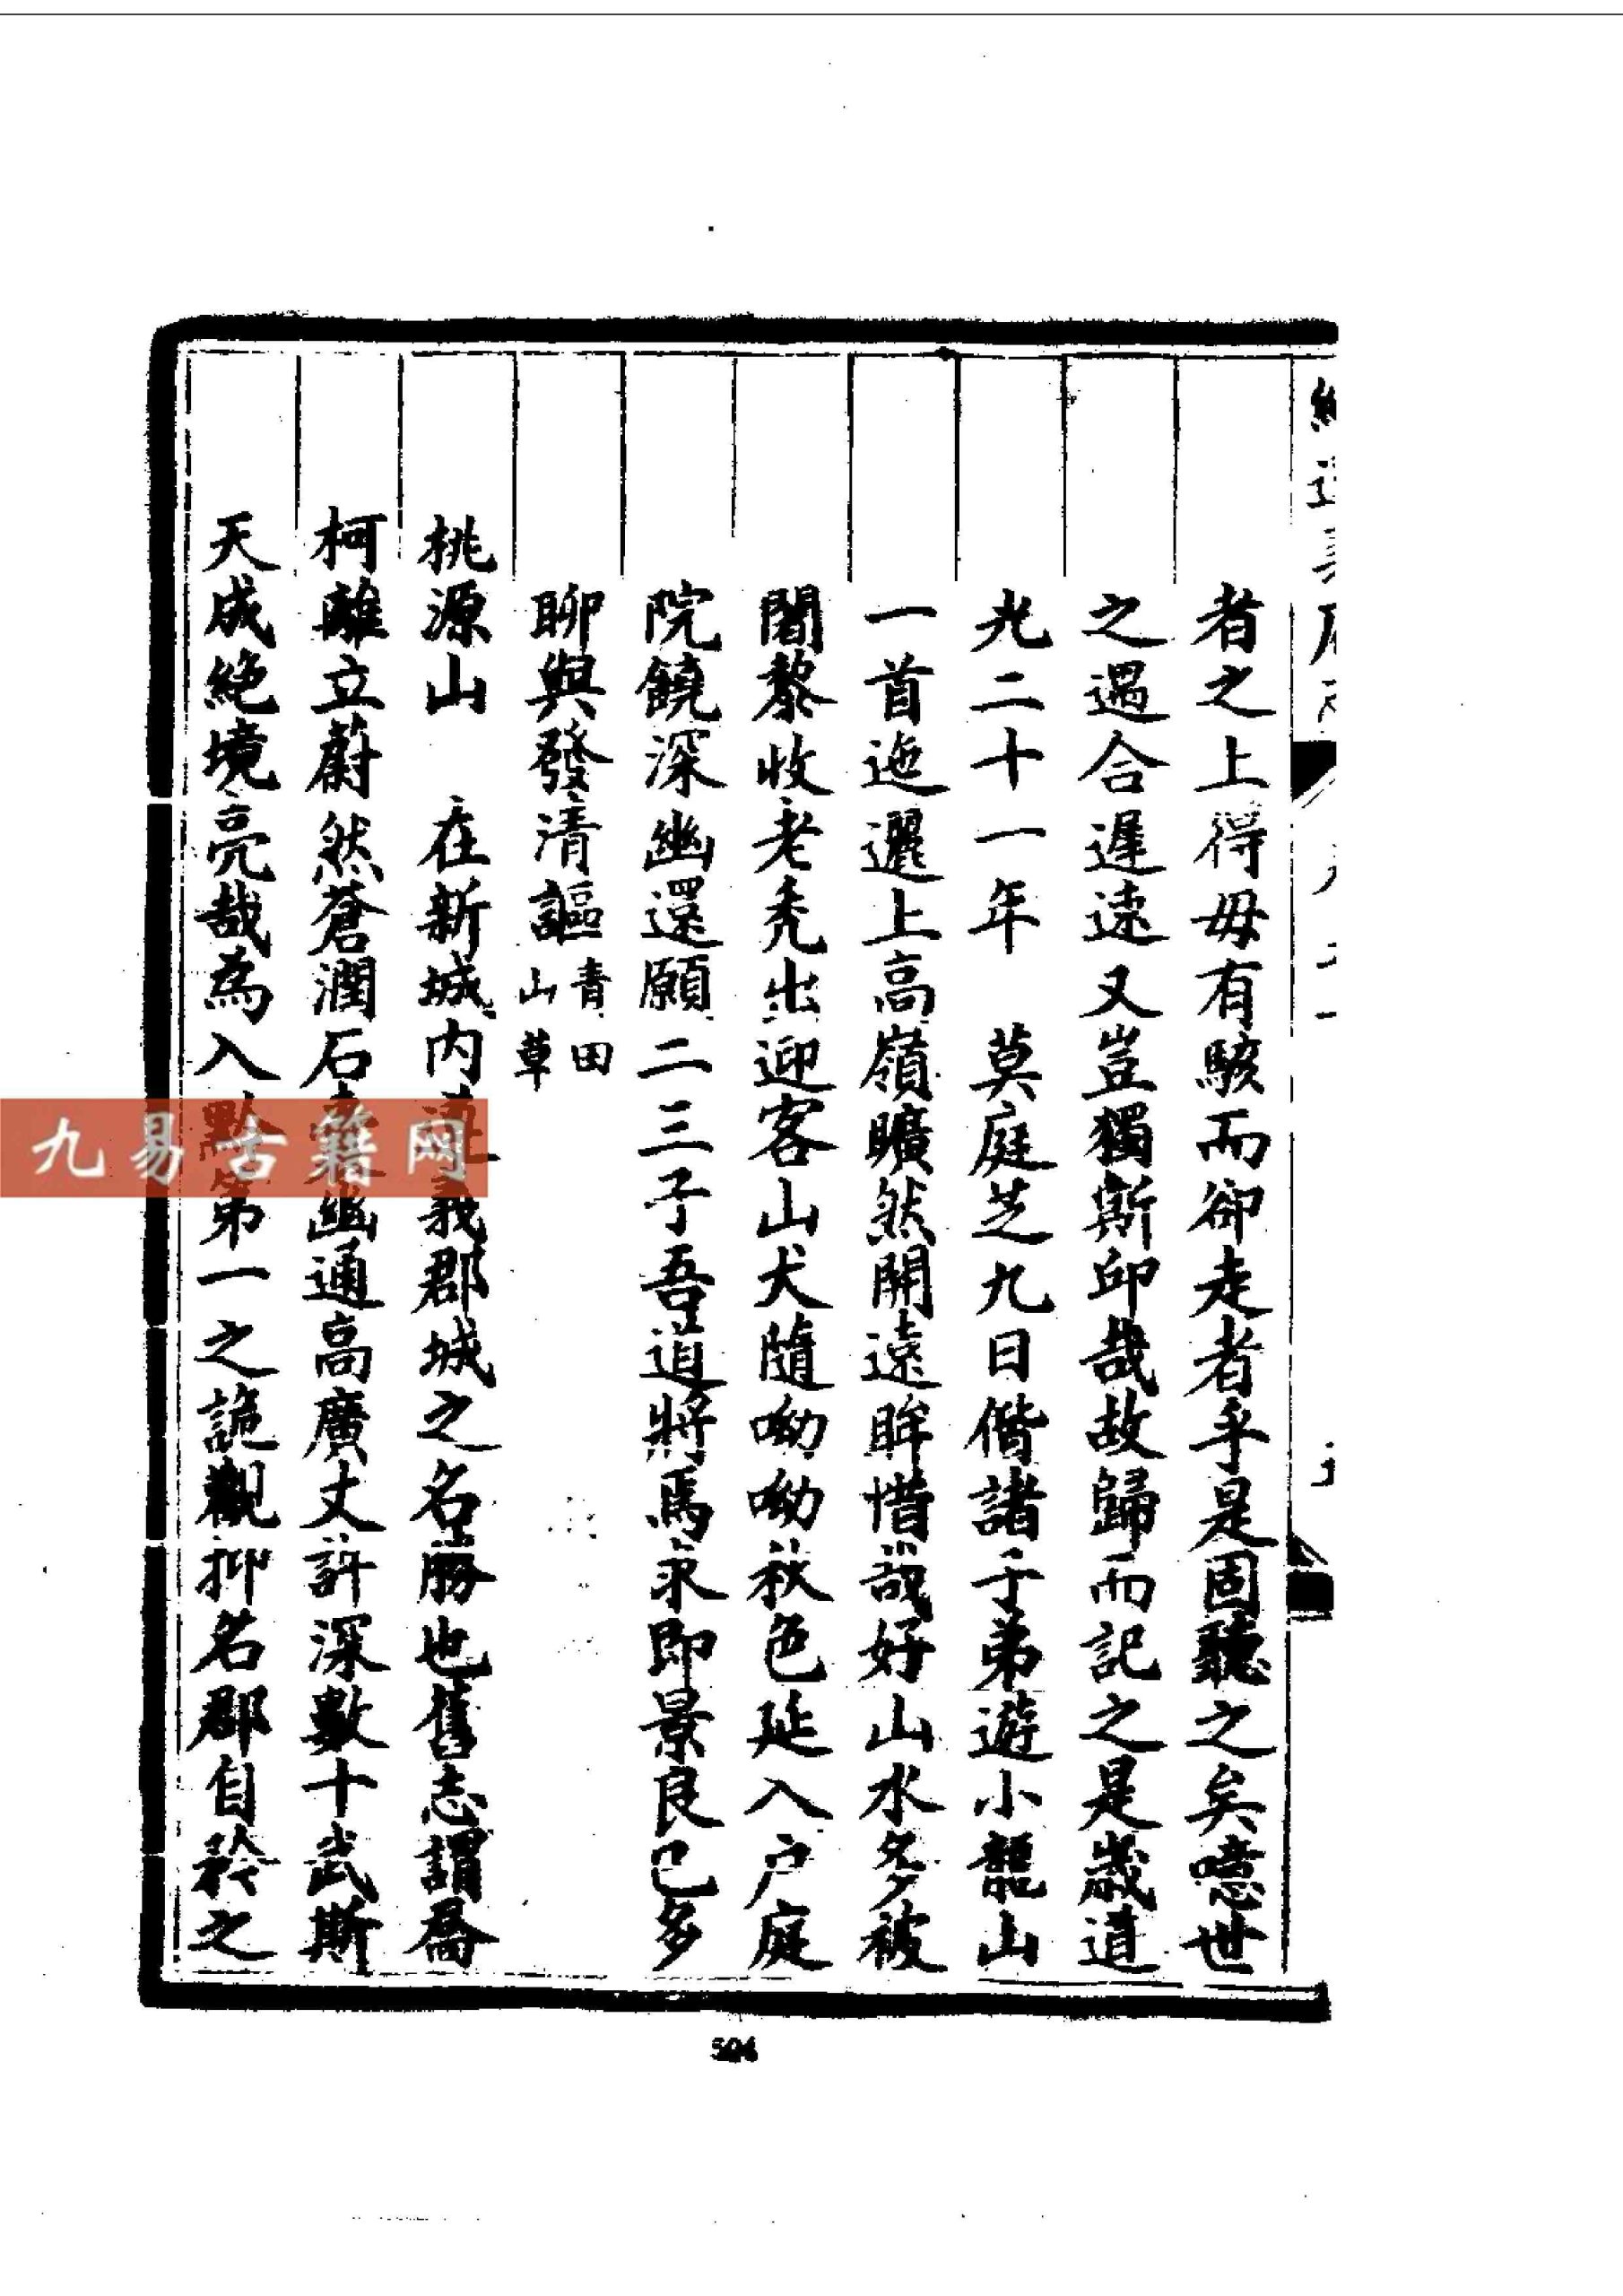 者之上得毋有駭而卻走者乎是固聽之矣噫世
之遇合遲速又豈獨斯邱哉故歸而記之是歲道
光二十一年　莫庭芝九日偕諸子弟遊小龍山
一首迤邐上高嶺曠然開遠眸惜哉好山水多被
闍黎收老禿出迎客山犬隨呦呦秋色延入户庭
院饒深幽還願二三子吾道將焉求即景良已多
聊與發清謳青田山草
桃源山　在新城内遵義郡城之名勝也舊志謂喬
柯離立蔚然蒼潤石幽通高廣丈許深數十武斯
天成絶境亮哉為入黔第一之詭觀抑名郡自矜之
504
九易古籍网